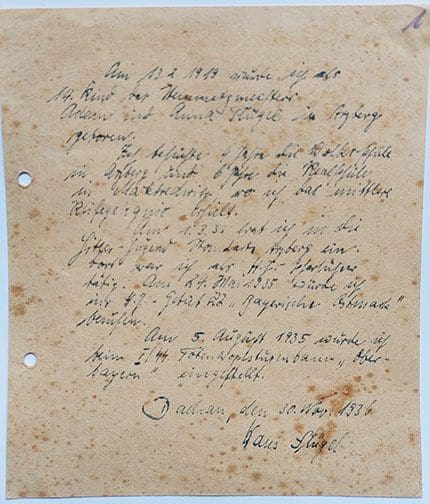 1
Am 13.2.1919 wurde ich als
14. Kind des Steinmetzmeisters
Adam und Anna Flügel in Arzberg
geboren.
Ich besuchte 4 Jahre die Volksschule
in Arzberg und 6 Jahre die Realschule
in Marktredwitz wo ich das mittlere
Reifezeugnis erhielt.
Am 1.3.32 trat ich in die
Hitler-Jugend Standort Arzberg ein.
Dort war ich als H.J.
tätig. Am 24. Mai 1935 wurde ich
zur H.J. Gebiet 22 „Bayerische Ostmark"
berufen.
Am 5. August 1935 wurde ich
beim I/SS Totenkopfsturmbann „Ober-
bayern" eingestellt.
Dachau, den 30. Nov. 1936
Hans Flügel